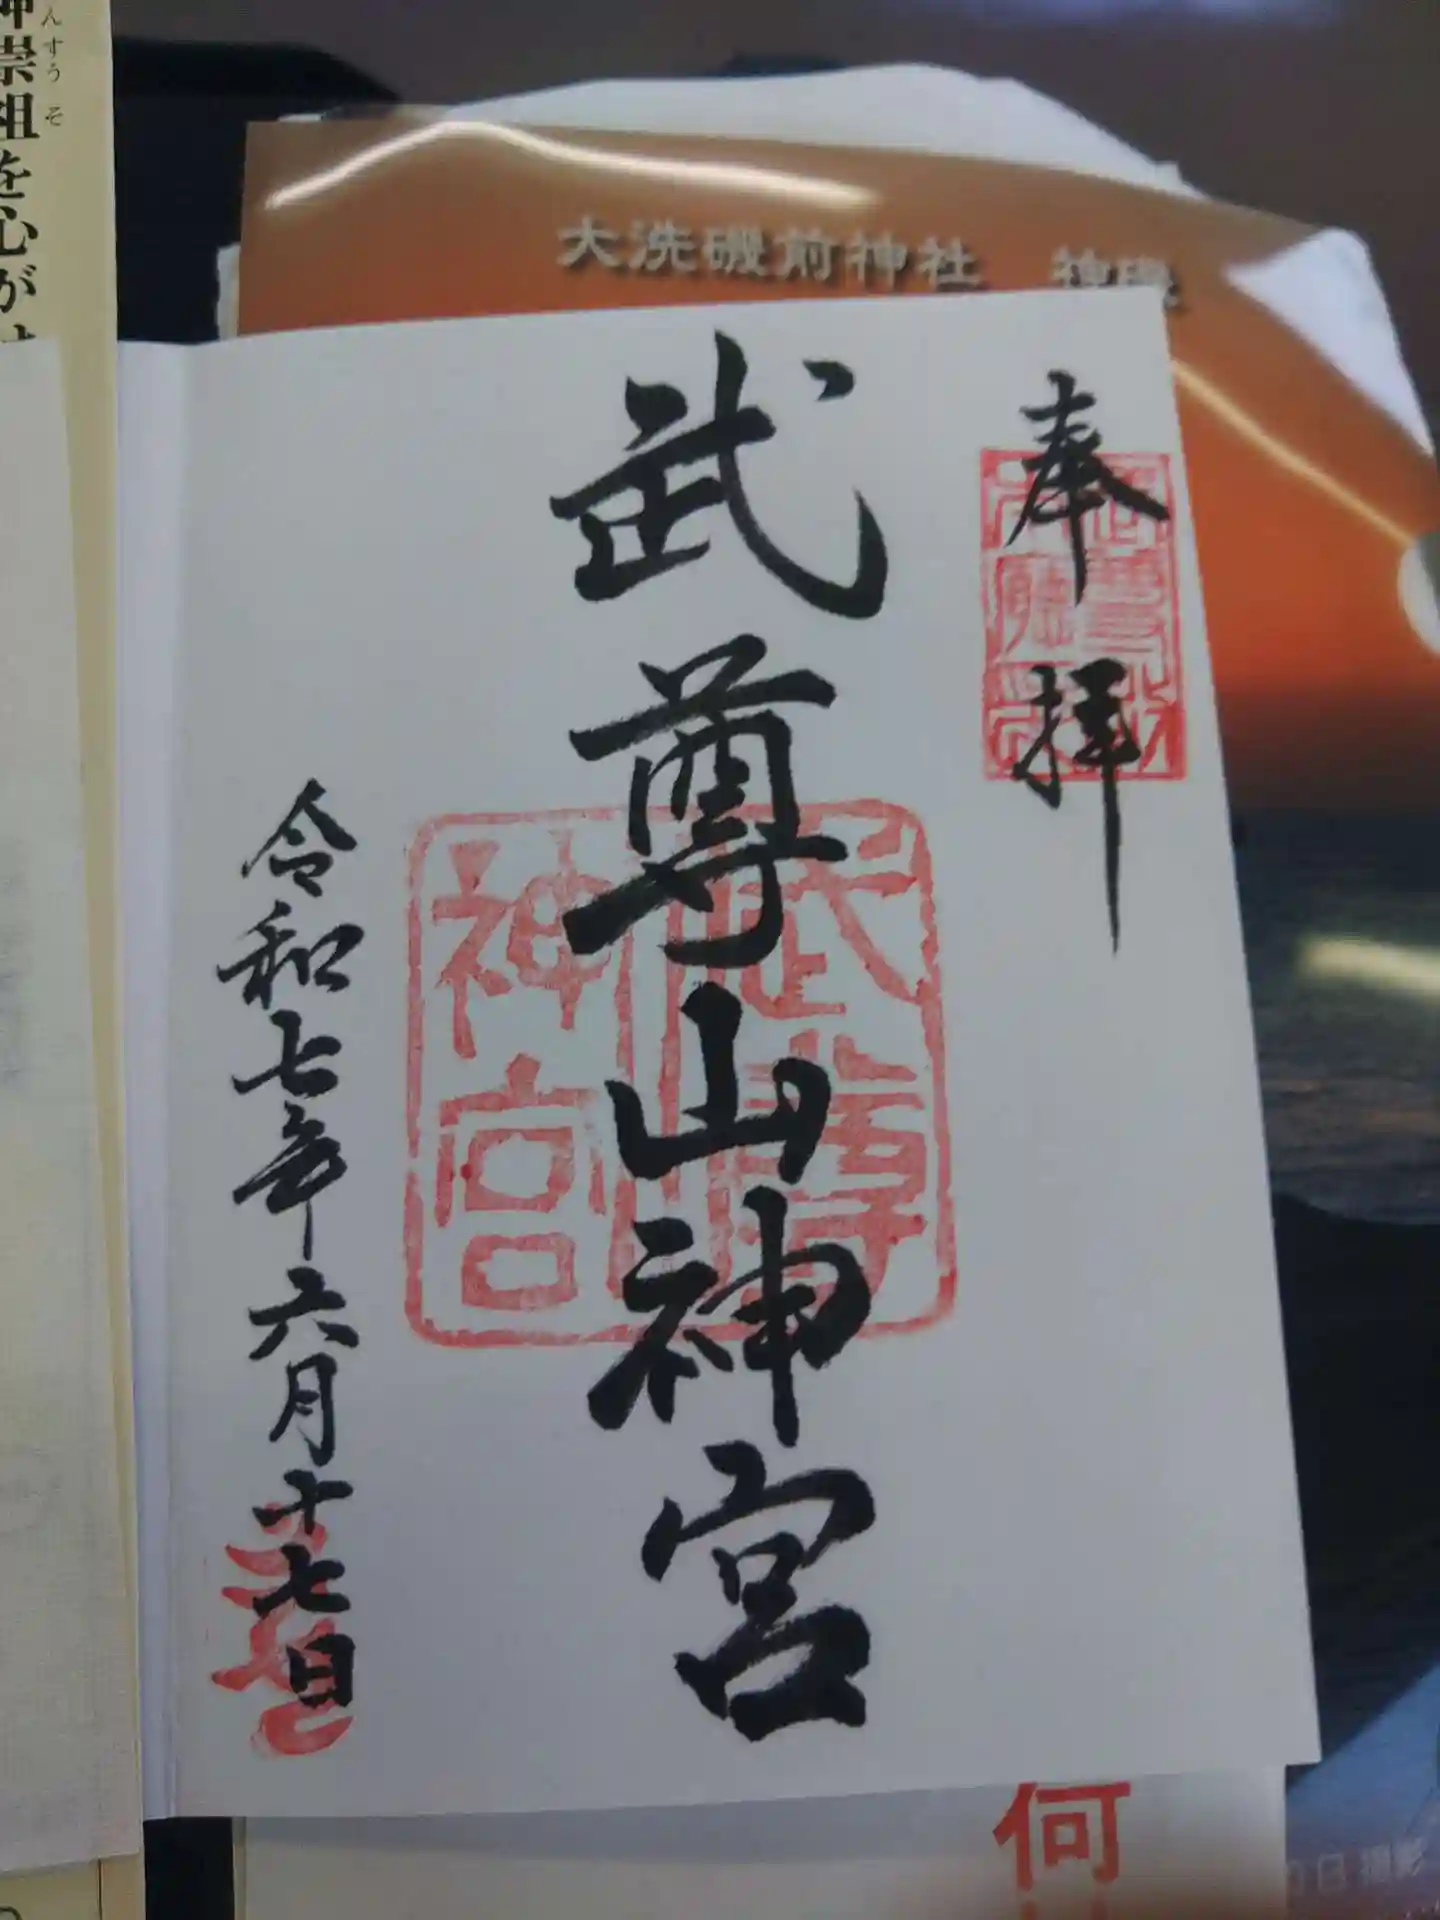 大洗磯前神社　神磯
奉拝
武尊山神宮
令和七年六月十七日
武尊
神宮
神崇祖を心が
んすうそ
何
0日撮影